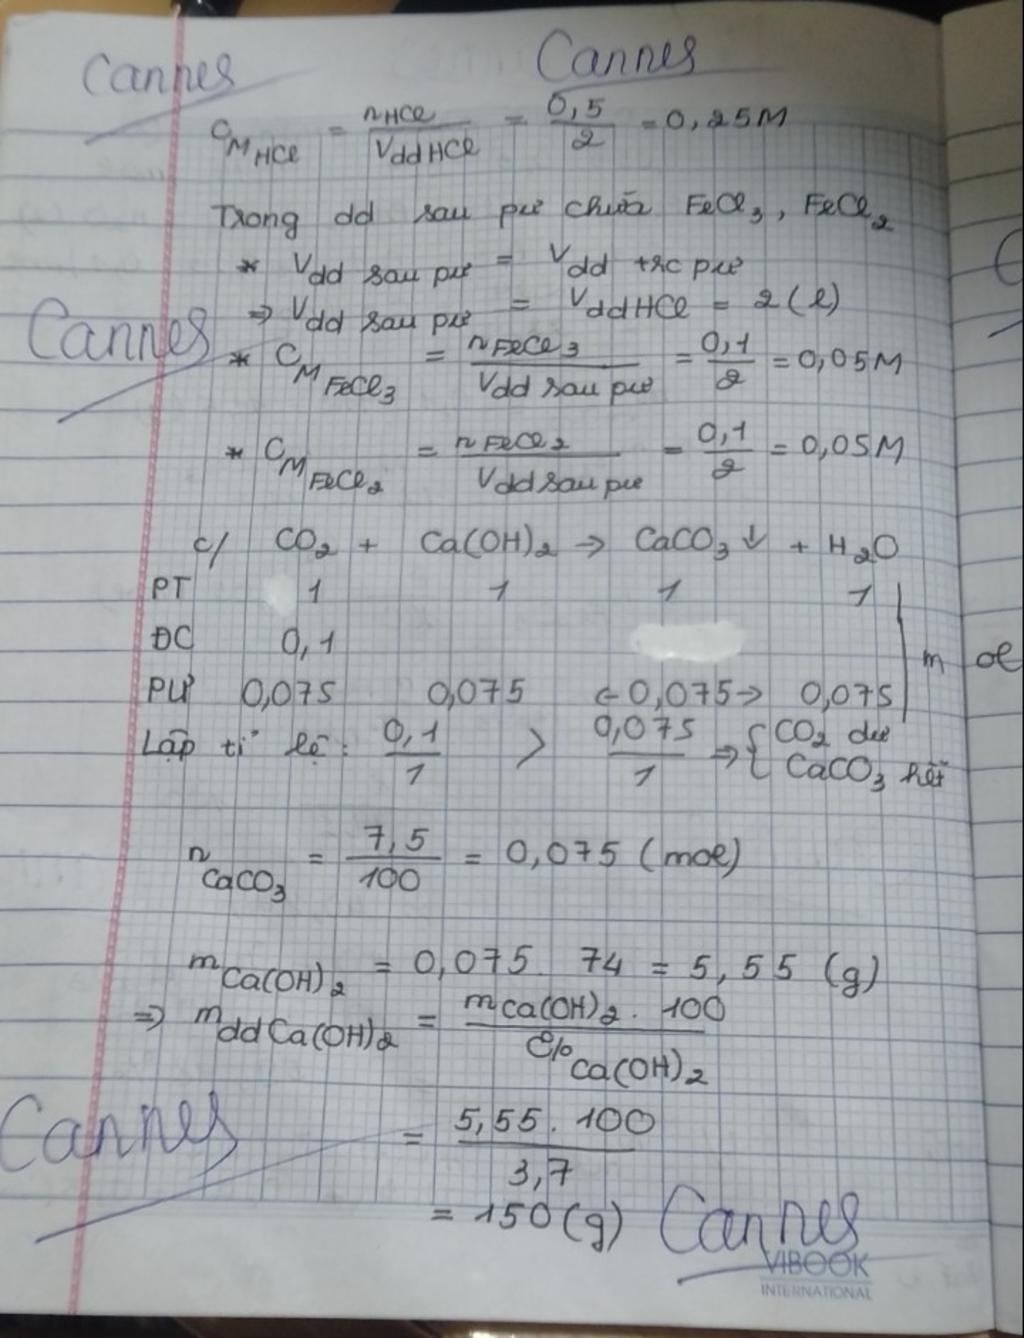 Cannes Cannes
C_M HCl = n HCl / Vdd HCl = 0,5 / 2 = 0,25M
Trong dd sau pư chứa FeCl₃, FeCl₂
* Vdd sau pư = Vdd trc pư
⇒ Vdd sau pư = Vdd HCl = 2 (l)
Cannes
* C_M FeCl₃ = n FeCl₃ / Vdd sau pư = 0,1 / 2 = 0,05M
* C_M FeCl₂ = n FeCl₂ / Vdd sau pư = 0,1 / 2 = 0,05M
c/ CO₂ + Ca(OH)₂ → CaCO₃↓ + H₂O
PT 1 1 1 1
ĐC 0,1
mol
PƯ 0,075 0,075 ← 0,075 → 0,075
Lập tỉ lệ: 0,1 / 1 > 0,075 / 1 ⇒ { CO₂ dư
CaCO₃ hết
n CaCO₃ = 7,5 / 100 = 0,075 (mol)
m Ca(OH)₂ = 0,075 . 74 = 5,55 (g)
⇒ m dd Ca(OH)₂ = m Ca(OH)₂ . 100 / C% Ca(OH)₂
Cannes
= 5,55 . 100 / 3,7
= 150 (g) Cannes
VIBOOK
INTERNATIONAL